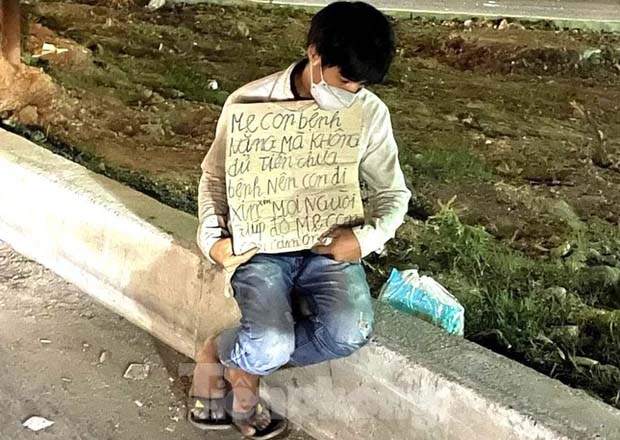 Mẹ con bệnh
Nặng mà không
đủ Tiền chưa
bệnh Nên con đi
xin mọi Người
giúp đỡ Mẹ con
cảm ơn
Tiền phong